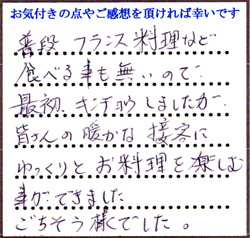 お気付きの点やご感想を頂ければ幸いです
普段 フランス料理など
食べる事も無いので
最初 キンチョウしましたが
皆さんの暖かな接客に
ゆっくりとお料理を楽しむ
事ができました
ごちそう様でした。